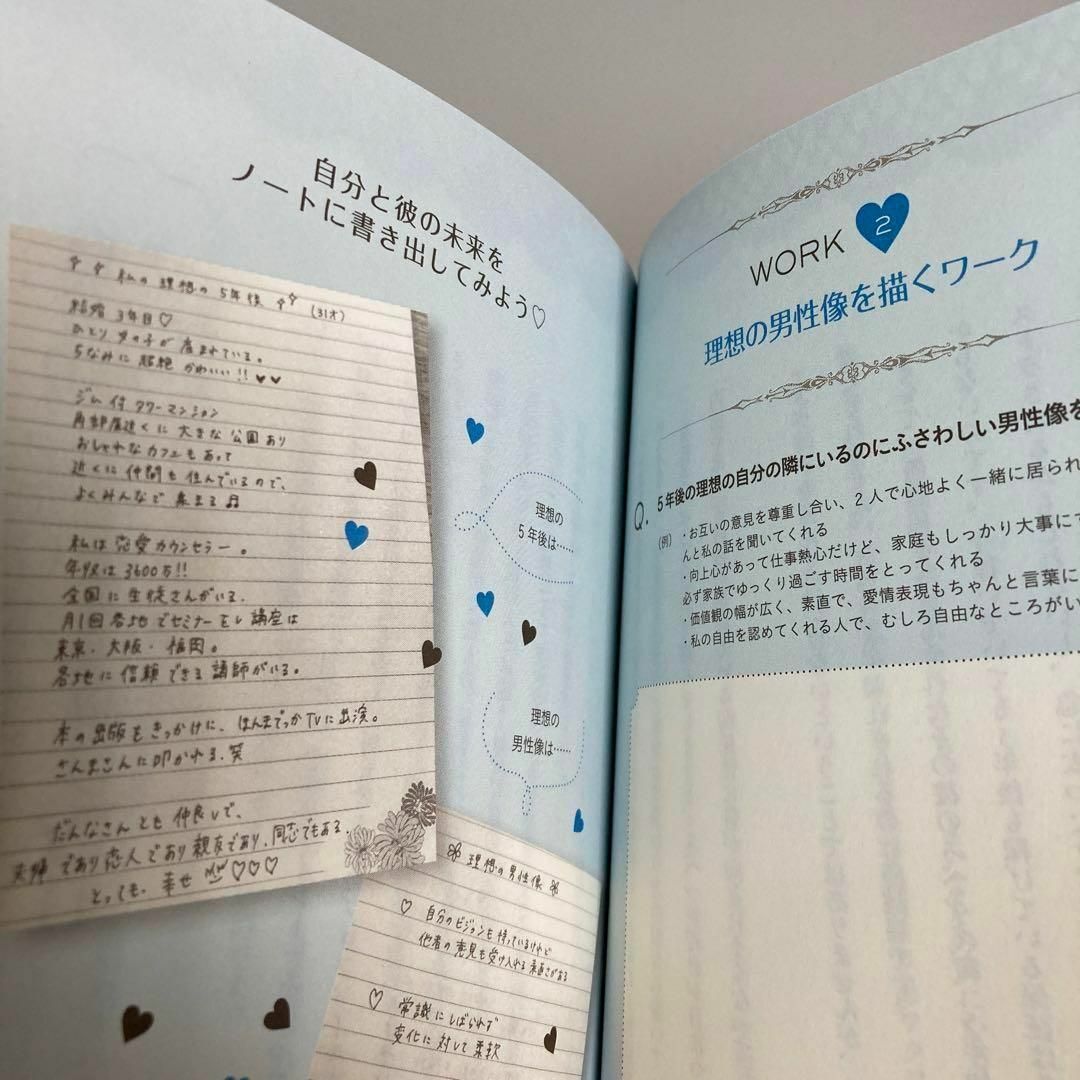 自分と彼の未来を
ノートに書き出してみよう♡
私の理想の5年後
(31才)
結婚3年目♡
ひとり男の子が産まれている。
ちなみに超絶かわいい!!♥♥
ジム付タワーマンション
角部屋近くに大きな公園あり
おしゃれなカフェもあって
近くに仲間も住んでいるので、
よくみんなで集まる♫
私は恋愛カウンセラー。
年収は3600万!!
全国に生徒さんがいる。
月1回各地でセミナーをし講座は
東京・大阪・福岡。
各地に信頼できる講師がいる。
本の出版をきっかけに、ほんまでっかTVに出演。
さんまさんに叩かれる。笑
だんなさんとも仲良しで、
夫婦であり恋人であり親友であり、同志でもある。
とっても、幸せ♡♡♡
理想の
5年後は……
理想の
男性像は……
理想の男性像
♡ 自分のビジョンを持っているけれど
他者の意見も受け入れる素直さがある
♡ 常識にしばられず
変化に対して柔軟
WORK 2
理想の男性像を描くワーク
Q. 5年後の理想の自分の隣にいるのにふさわしい男性像を
(例) ・お互いの意見を尊重し合い、2人で心地よく一緒に居られ
んと私の話を聞いてくれる
・向上心があって仕事熱心だけど、家庭もしっかり大事に
必ず家族でゆっくり過ごす時間をとってくれる
・価値観の幅が広く、素直で、愛情表現もちゃんと言葉に
・私の自由を認めてくれる人で、むしろ自由なところがい